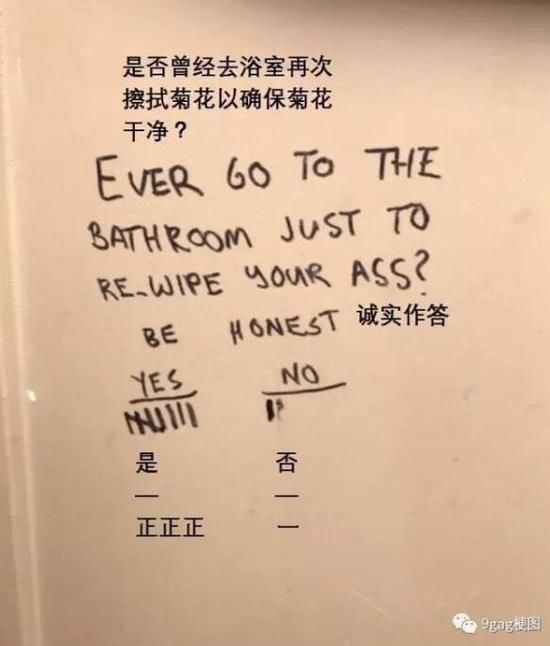 是否曾经去浴室再次
擦拭菊花以确保菊花
干净？
EVER GO TO THE
BATHROOM JUST TO
RE-WIPE YOUR ASS?
BE HONEST 诚实作答
YES NO
是 否
— —
正正正 一
9gag梗图